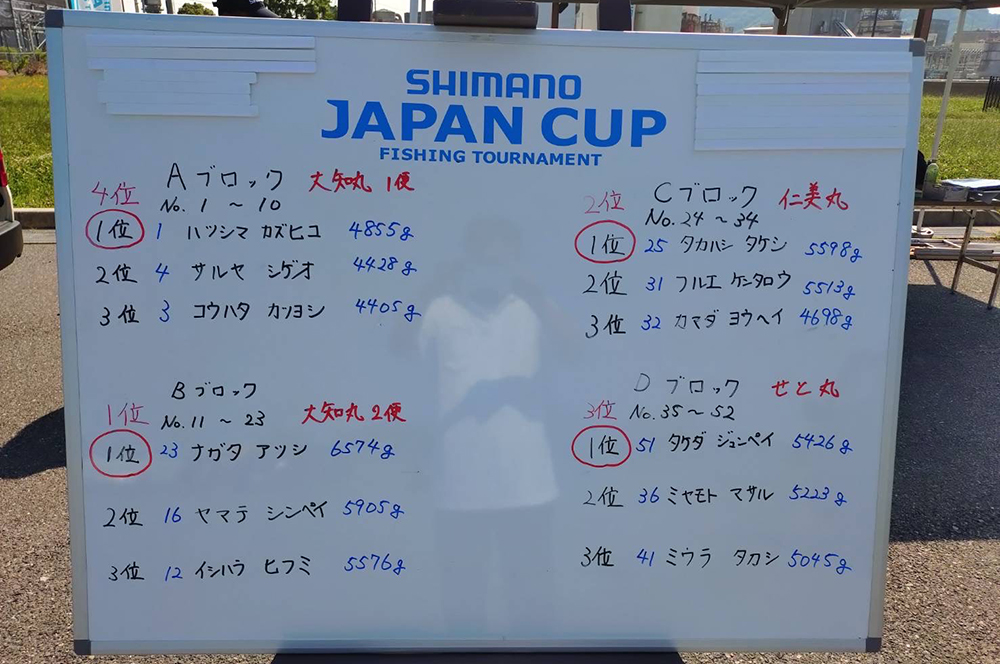 SHIMANO
JAPAN CUP
FISHING TOURNAMENT
4位 Aブロック 大知丸 1便
No. 1 ~ 10
1位 1 ハツシマ カズヒコ 4855g
2位 4 サルヤ シゲオ 4428g
3位 3 コウハタ カツヨシ 4405g
1位 Bブロック
No. 11 ~ 23 大知丸 2便
1位 23 ナガタ アツシ 6574g
2位 16 ヤマテ シンペイ 5905g
3位 12 イシハラ ヒフミ 5576g
2位 Cブロック 仁美丸
No. 24 ~ 34
1位 25 タカハシ タケシ 5598g
2位 31 フルエ ケンタロウ 5513g
3位 32 カマダ ヨウヘイ 4698g
3位 Dブロック せと丸
No. 35 ~ 52
1位 51 タケダ ジュンペイ 5426g
2位 36 ミヤモト マサル 5223g
3位 41 ミウラ タカシ 5045g